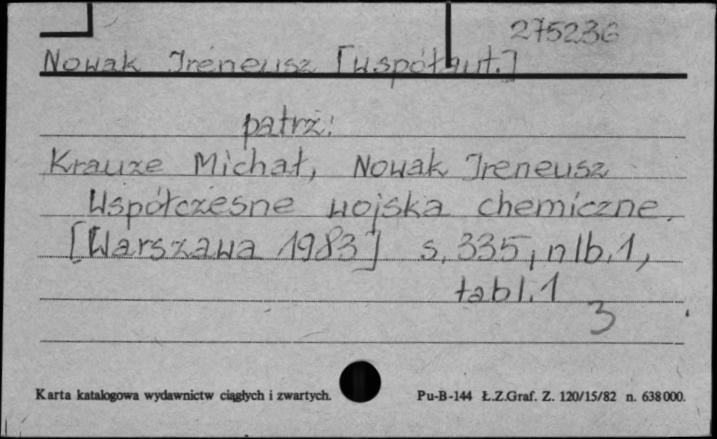 275236
Nowak Ireneusz [współaut.]
patrz:
Krauze Michał, Nowak Ireneusz
Współczesne wojska chemiczne.
[Warszawa 1983] s. 335, nlb. 1,
tabl. 1
3
Karta katalogowa wydawnictw ciągłych i zwartych. Pu-B-144 Ł.Z.Graf. Z. 120/15/82 n. 638 000.